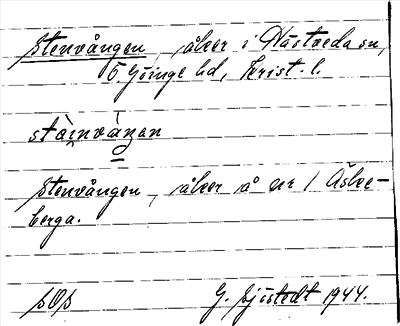 Stenvången, åker i Hästveda sn,
Ö. Göinge hd, Krist. l.
stàinvàŋen
Stenvången, åker å nr 1 Åske-
berga.
G. Sjöstedt 1944.